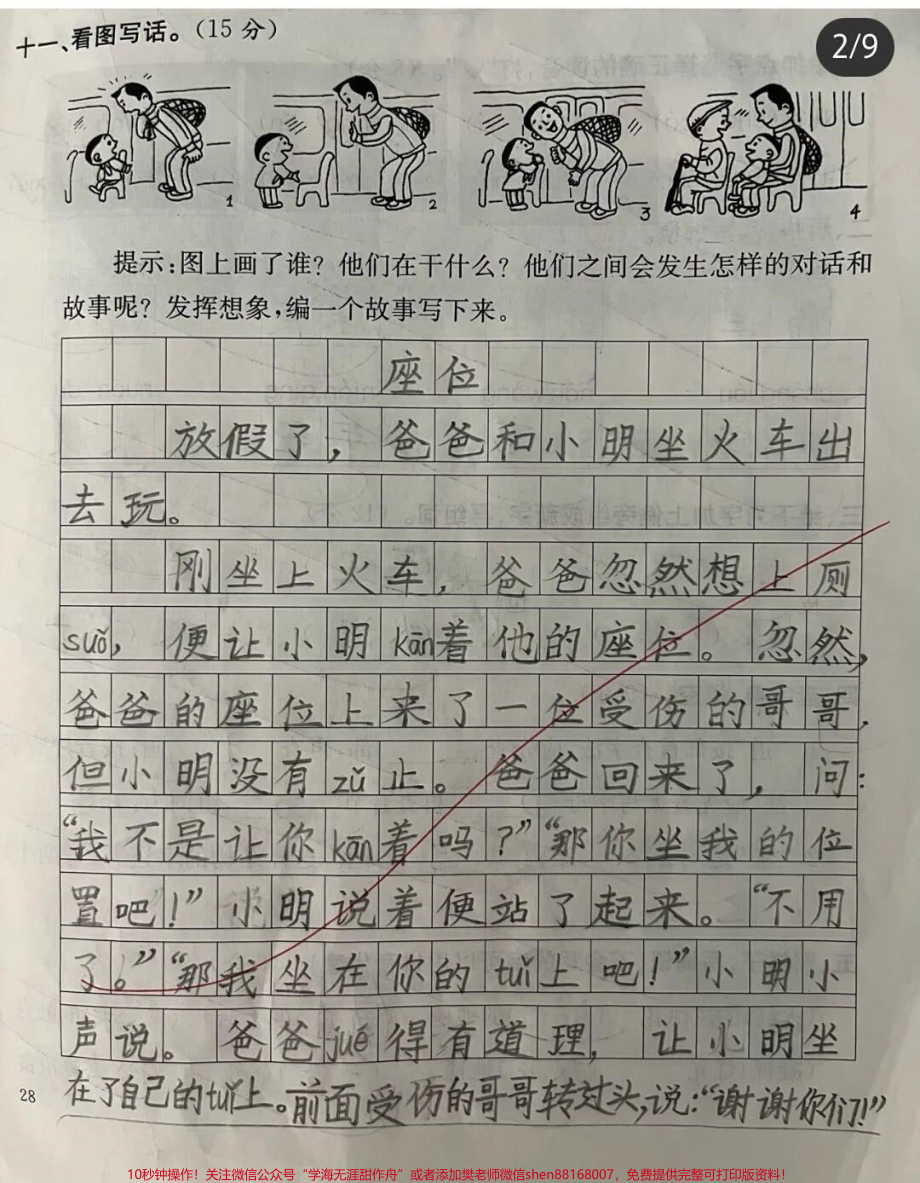 十一、看图写话。(15 分)
2/9
1
2
3
4
提示:图上画了谁?他们在干什么?他们之间会发生怎样的对话和
故事呢?发挥想象,编一个故事写下来。
座位
放假了,爸爸和小明坐火车出
去玩。
刚坐上火车,爸爸忽然想上厕
suǒ,便让小明kān着他的座位。忽然,
爸爸的座位上来了一位受伤的哥哥,
但小明没有zǔ止。爸爸回来了,问:
“我不是让你kān着吗?”“那你坐我的位
置吧!”小明说着便站了起来。“不用
了。”“那我坐在你的tuǐ上吧!”小明小
声说。爸爸jué得有道理,让小明坐
在了自己的tuǐ上。前面受伤的哥哥转过头,说:“谢谢你们!”
28
10秒钟操作!关注微信公众号“学海无涯甜作舟”或者添加樊老师微信shen88168007,免费提供完整可打印版资料!